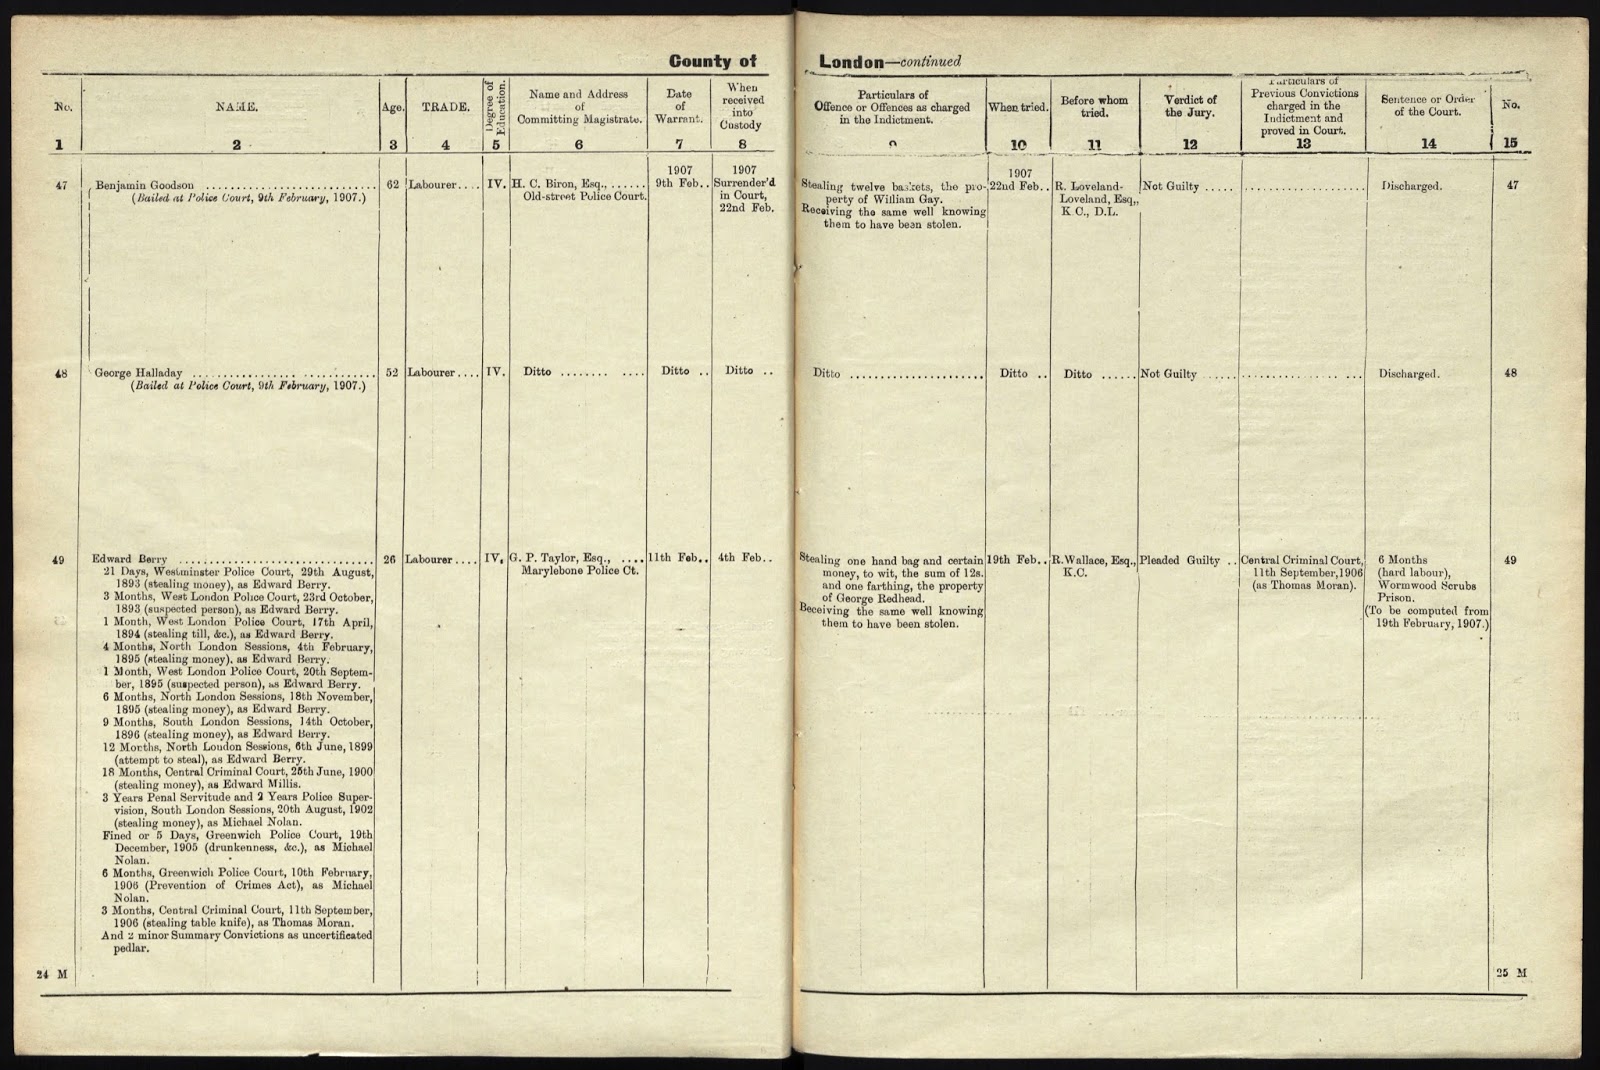 County of
No.
NAME.
Age.
TRADE.
Degree of
Education.
Name and Address
of
Committing Magistrate.
Date
of
Warrant.
When
received
into
Custody
1
2
3
4
5
6
7
8
47
Benjamin Goodson
(Bailed at Police Court, 9th February, 1907.)
62
Labourer....
IV.
H. C. Biron, Esq., ......
Old-street Police Court.
1907
9th Feb..
1907
Surrender'd
in Court,
22nd Feb.
48
George Halladay
(Bailed at Police Court, 9th February, 1907.)
52
Labourer....
IV.
Ditto
Ditto ..
Ditto ..
49
Edward Berry
21 Days, Westminster Police Court, 29th August,
1893 (stealing money), as Edward Berry.
3 Months, West London Police Court, 23rd October,
1893 (suspected person), as Edward Berry.
1 Month, West London Police Court, 17th April,
1894 (stealing till, &c.), as Edward Berry.
4 Months, North London Sessions, 4th February,
1895 (stealing money), as Edward Berry.
1 Month, West London Police Court, 20th Septem-
ber, 1895 (suspected person), as Edward Berry.
6 Months, North London Sessions, 18th November,
1895 (stealing money), as Edward Berry.
9 Months, South London Sessions, 14th October,
1896 (stealing money), as Edward Berry.
12 Months, North London Sessions, 6th June, 1899
(attempt to steal), as Edward Berry.
18 Months, Central Criminal Court, 25th June, 1900
(stealing money), as Edward Millis.
3 Years Penal Servitude and 2 Years Police Super-
vision, South London Sessions, 20th August, 1902
(stealing money), as Michael Nolan.
Fined or 5 Days, Greenwich Police Court, 19th
December, 1905 (drunkenness, &c.), as Michael
Nolan.
6 Months, Greenwich Police Court, 10th February,
1906 (Prevention of Crimes Act), as Michael
Nolan.
3 Months, Central Criminal Court, 11th September,
1906 (stealing table knife), as Thomas Moran.
And 2 minor Summary Convictions as uncertificated
pedlar.
26
Labourer....
IV.
G. P. Taylor, Esq., ....
Marylebone Police Ct.
11th Feb..
4th Feb..
24 M
London—continued
Particulars of
Offence or Offences as charged
in the Indictment.
When tried.
Before whom
tried.
Verdict of
the Jury.
Particulars of
Previous Convictions
charged in the
Indictment and
proved in Court.
Sentence or Order
of the Court.
No.
9
10
11
12
13
14
15
Stealing twelve baskets, the pro-
perty of William Gay.
Receiving the same well knowing
them to have been stolen.
1907
22nd Feb..
R. Loveland-
Loveland, Esq.,
K.C., D.L.
Not Guilty .....
Discharged.
47
Ditto
Ditto ..
Ditto ......
Not Guilty
Discharged.
48
Stealing one hand bag and certain
money, to wit, the sum of 12s.
and one farthing, the property
of George Redhead.
Receiving the same well knowing
them to have been stolen.
19th Feb..
R. Wallace, Esq.,
K.C.
Pleaded Guilty ..
Central Criminal Court,
11th September, 1906
(as Thomas Moran).
6 Months
(hard labour),
Wormwood Scrubs
Prison.
(To be computed from
19th February, 1907.)
49
25 M